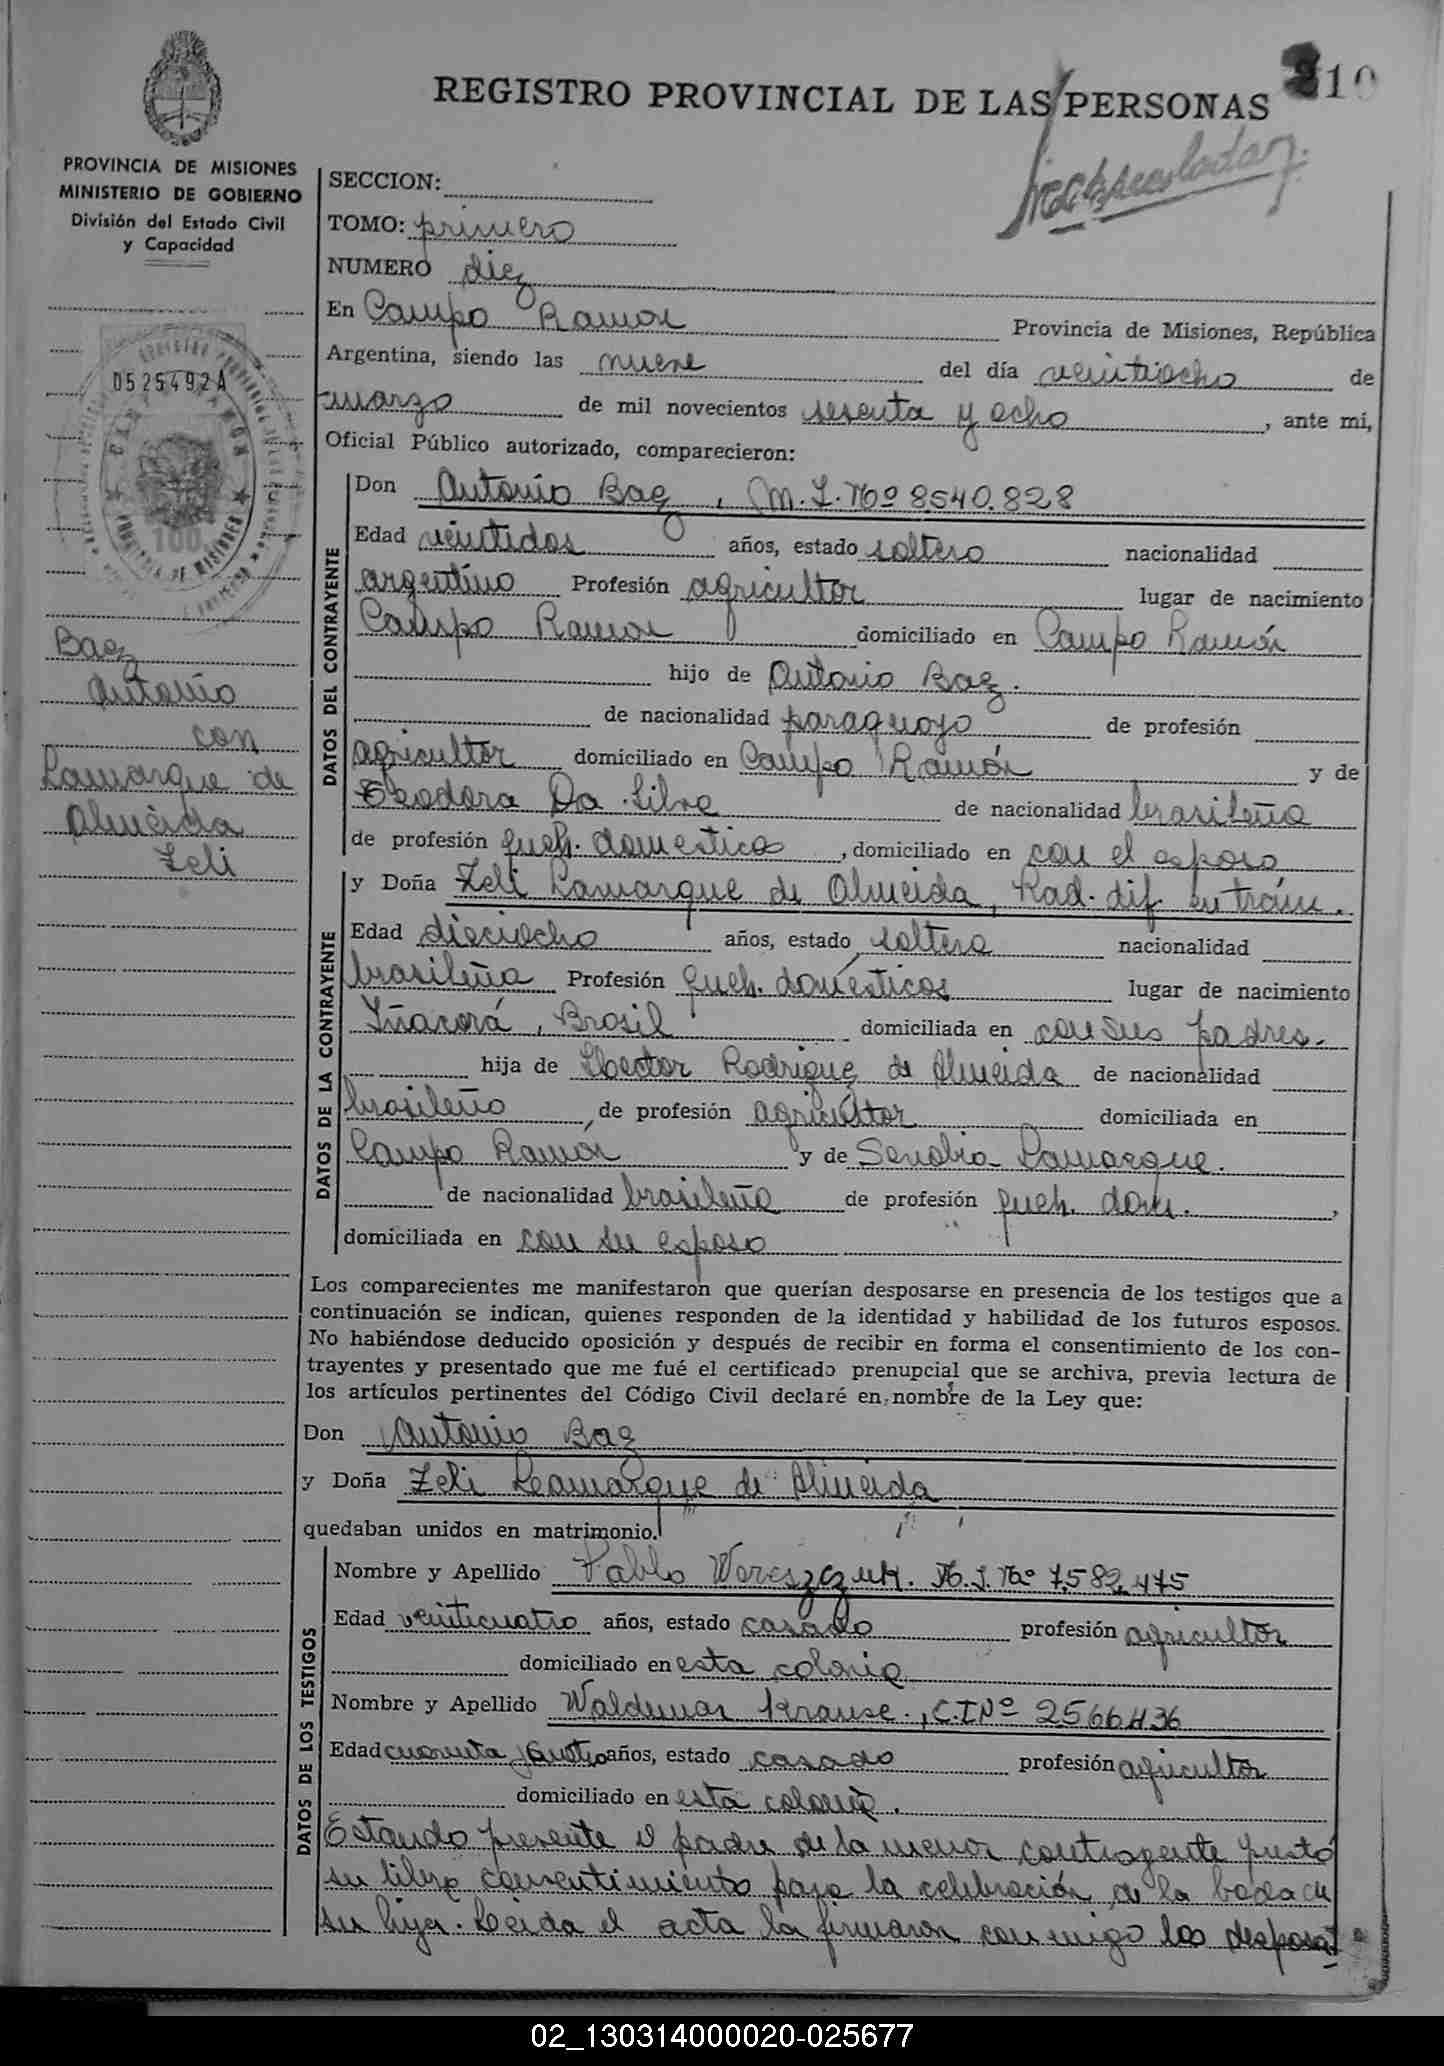 REGISTRO PROVINCIAL DE LAS PERSONAS
10
PROVINCIA DE MISIONES
MINISTERIO DE GOBIERNO
División del Estado Civil
y Capacidad
0525492A
100
Baez
Antonio
con
Lamarque de
Almeida
Zeli
SECCION:
TOMO: primero
NUMERO diez
En Campo Ramon Provincia de Misiones, República
Argentina, siendo las nueve del día veintiocho de
marzo de mil novecientos sesenta y ocho, ante mi,
Oficial Público autorizado, comparecieron:
DATOS DEL CONTRAYENTE
Don Antonio Baez, M.I. Nº 8540.828
Edad veintidos años, estado soltero nacionalidad
argentino Profesión agricultor lugar de nacimiento
Campo Ramon domiciliado en Campo Ramón
hijo de Antonio Baez.
de nacionalidad paraguayo de profesión
agricultor domiciliado en Campo Ramón y de
Teodora Da Silva de nacionalidad brasileña
de profesión queh. domesticos, domiciliado en con el esposo
DATOS DE LA CONTRAYENTE
y Doña Zeli Lamarque de Almeida, Rad. dif. en trám.
Edad dieciocho años, estado soltera nacionalidad
brasileña Profesión queh. domésticos lugar de nacimiento
Brasil domiciliada en con sus padres.
hija de Rodriguez de Almeida de nacionalidad
brasileño, de profesión agricultor domiciliada en
Campo Ramon y de Senobia Lamarque.
de nacionalidad brasileña de profesión queh. dom.,
domiciliada en con su esposo
Los comparecientes me manifestaron que querían desposarse en presencia de los testigos que a
continuación se indican, quienes responden de la identidad y habilidad de los futuros esposos.
No habiéndose deducido oposición y después de recibir en forma el consentimiento de los con-
trayentes y presentado que me fué el certificado prenupcial que se archiva, previa lectura de
los artículos pertinentes del Código Civil declaré en nombre de la Ley que:
Don Antonio Baez
y Doña Zeli Leamarque de Almeida
quedaban unidos en matrimonio.
DATOS DE LOS TESTIGOS
Nombre y Apellido Pablo Wereszczuk. M.I. Nº 7.582.475
Edad veinticuatro años, estado casado profesión agricultor
domiciliado en esta colonia
Nombre y Apellido Waldemar Krause., C.I Nº 2566436
Edad cuarenta y cuatro años, estado casado profesión agricultor
domiciliado en esta colonia.
Estando presente el padre de la menor contrayente prestó
su libre consentimiento para la celebración de la boda de
su hija. Leída el acta la firmaron conmigo los desposa-
02_130314000020-025677